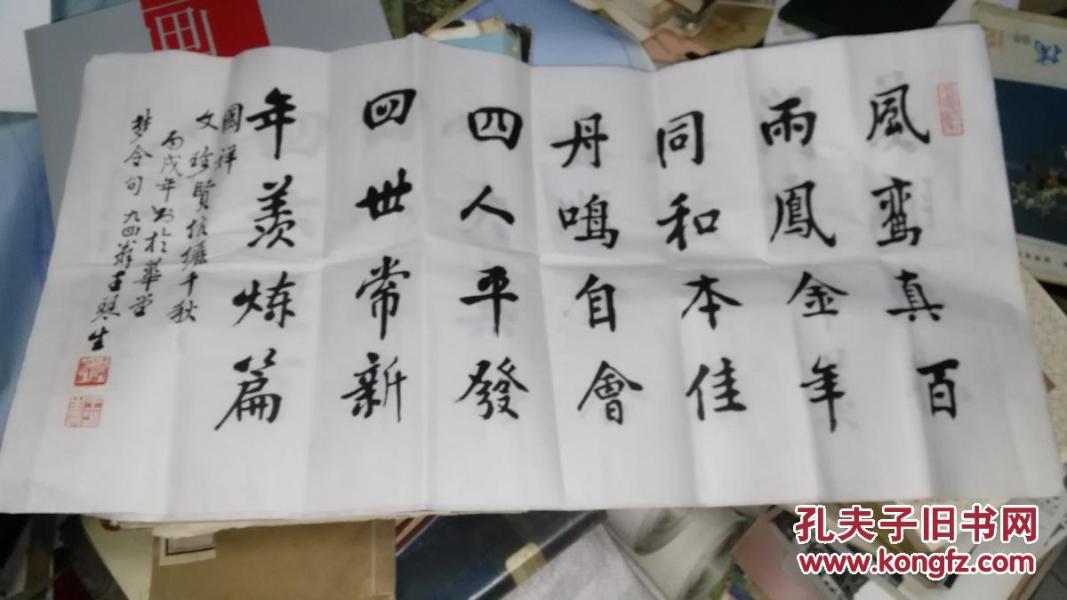 風鸾真百
雨鳳金年
同和本佳
丹鳴自會
四人平發
四世常新
年羡炼篇
國祥
文珍賢伉儷千秋
丙戌年书於華堂
梦令句 九四翁王琴生
画
孔夫子旧书网
www.kongfz.com